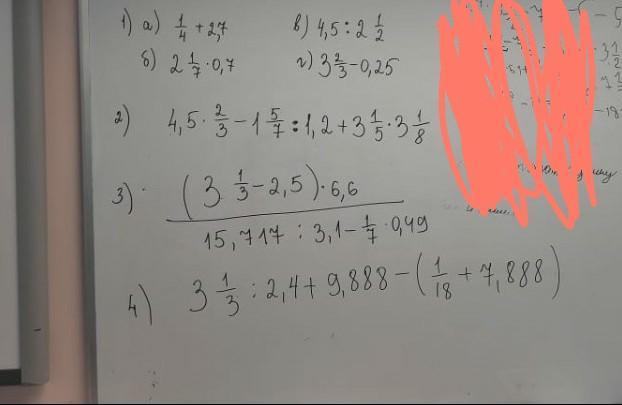 1) а) 1/4 + 2,7 в) 4,5 : 2 1/2
б) 2 1/7 · 0,7 г) 3 2/3 - 0,25
2) 4,5 · 2/3 - 1 5/7 : 1,2 + 3 1/5 · 3 1/8
3) (3 1/3 - 2,5) · 6,6
15,717 : 3,1 - 1/7 · 0,49
4) 3 1/3 : 2,4 + 9,888 - (1/18 + 7,888)